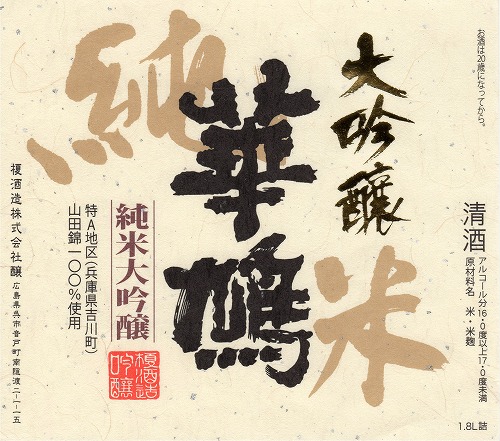 お酒は20歳になってから。
大吟醸
純米
華鳩
清酒
アルコール分16・0度以上17・0度未満
原材料名 米・米麹
1.8L詰
純米大吟醸
特A地区(兵庫県吉川町)
山田錦一〇〇%使用
榎酒造
吟醸
榎酒造株式会社醸
広島県呉市音戸町南隠渡二-一-一五